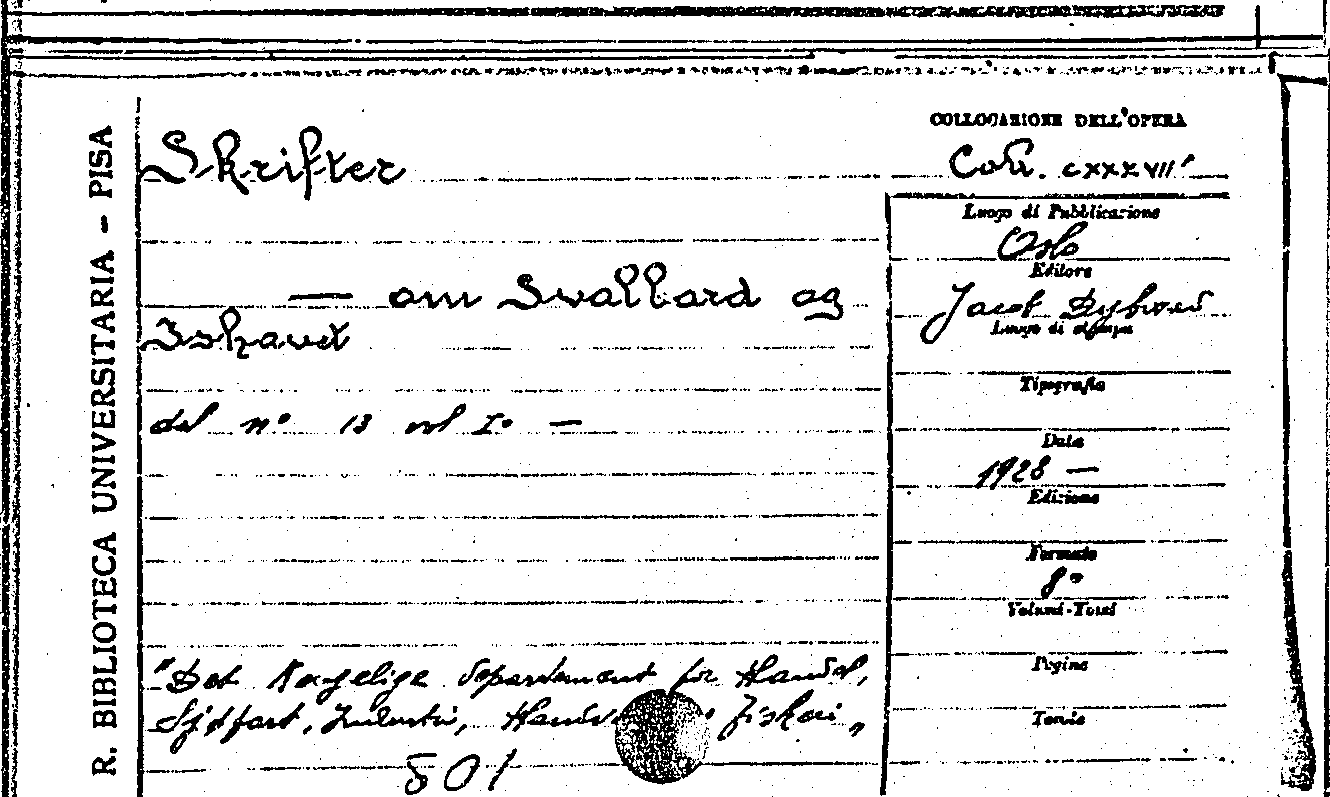 R. BIBLIOTECA UNIVERSITARIA - PISA
Skrifter
— om Svalbard og
Ishavet
dal n° 13 vol I° —
"Det Kongelige Departement for Handel,
Sjøfart, Industri, Fiskeri"
801
COLLOCAZIONE DELL'OPERA
Coll. CXXXVII
Luogo di Pubblicazione
Oslo
Editore
Jacob Dybwad
Luogo di stampa
Tipografia
Data
1928 —
Edizione
Formato
8°
Volumi-Tomi
Pagine
Tavole